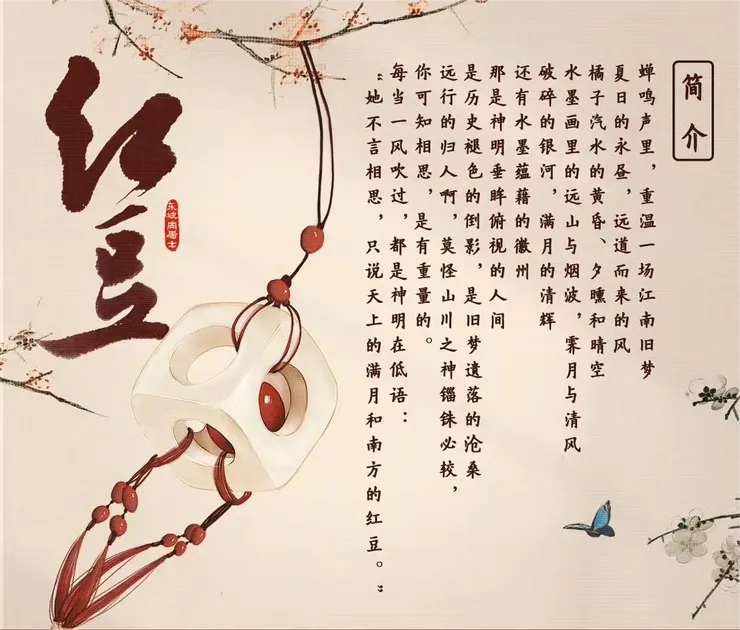 简介
蝉鸣声里，重温一场江南旧梦
夏日的永昼，远道而来的风
橘子汽水的黄昏、夕曛和晴空
水墨画里的远山与烟波，霁月与清风
破碎的银河，满月的清辉
还有水墨蕴藉的徽州
那是神明垂眸俯视的人间
是历史褪色的倒影，是旧梦遗落的沧桑
远行的归人啊，莫怪山川之神锱铢必较，
你可知相思，是有重量的。
每当一风吹过，都是神明在低语：
“她不言相思，只说天上的满月和南方的红豆。”
红豆
东坡肉居士